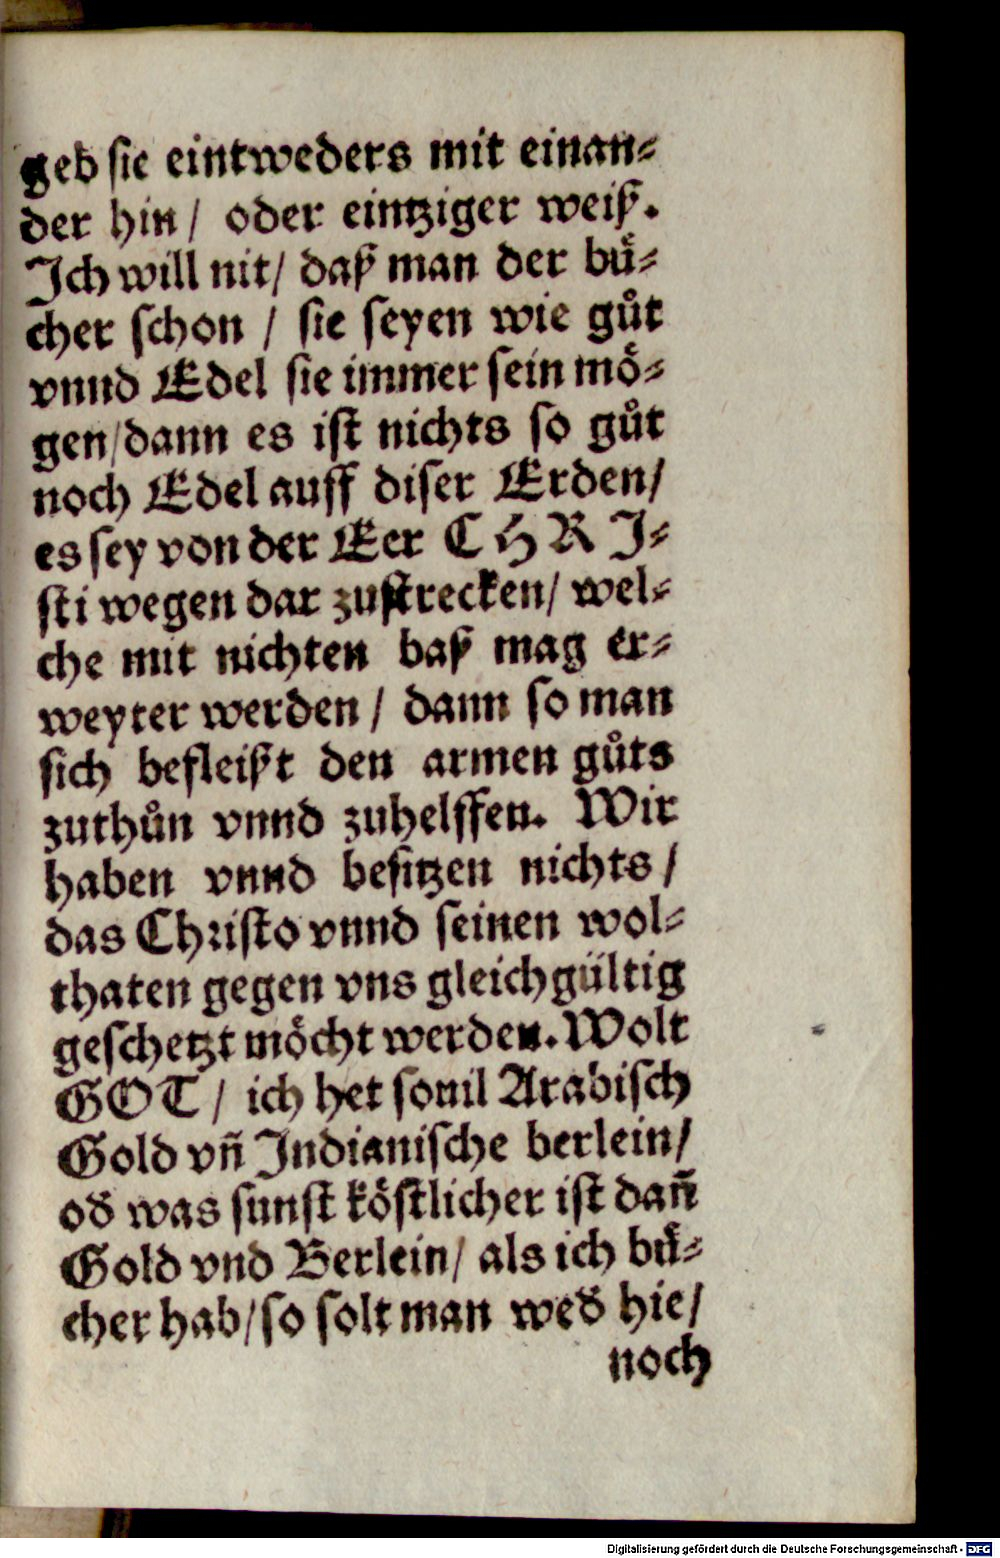 geb sie eintweders mit einan⸗
der hin / oder eintziger weiß.
Ich will nit / daß man der buͤ⸗
cher schon / sie seyen wie guͦt
vnnd Edel sie immer sein moͤ⸗
gen / dann es ist nichts so guͦt
noch Edel auff diser Erden /
es sey von der Eer CHRI⸗
sti wegen dar zustrecken / wel⸗
che mit nichten baß mag er⸗
weyter werden / dann so man
sich befleißt den armen guͦts
zuthuͦn vnnd zuhelffen. Wir
haben vnnd besitzen nichts /
das Christo vnnd seinen wol⸗
thaten gegen vns gleichgültig
geschetzt moͤcht werden. Wolt
GOT / ich het souil Arabisch
Gold vñ Indianische berlein /
od̕ was sunst koͤstlicher ist dañ
Gold vnd Berlein / als ich buͤ⸗
cher hab / so solt man wed̕ hie /
noch
Digitalisierung gefördert durch die Deutsche Forschungsgemeinschaft - DFG